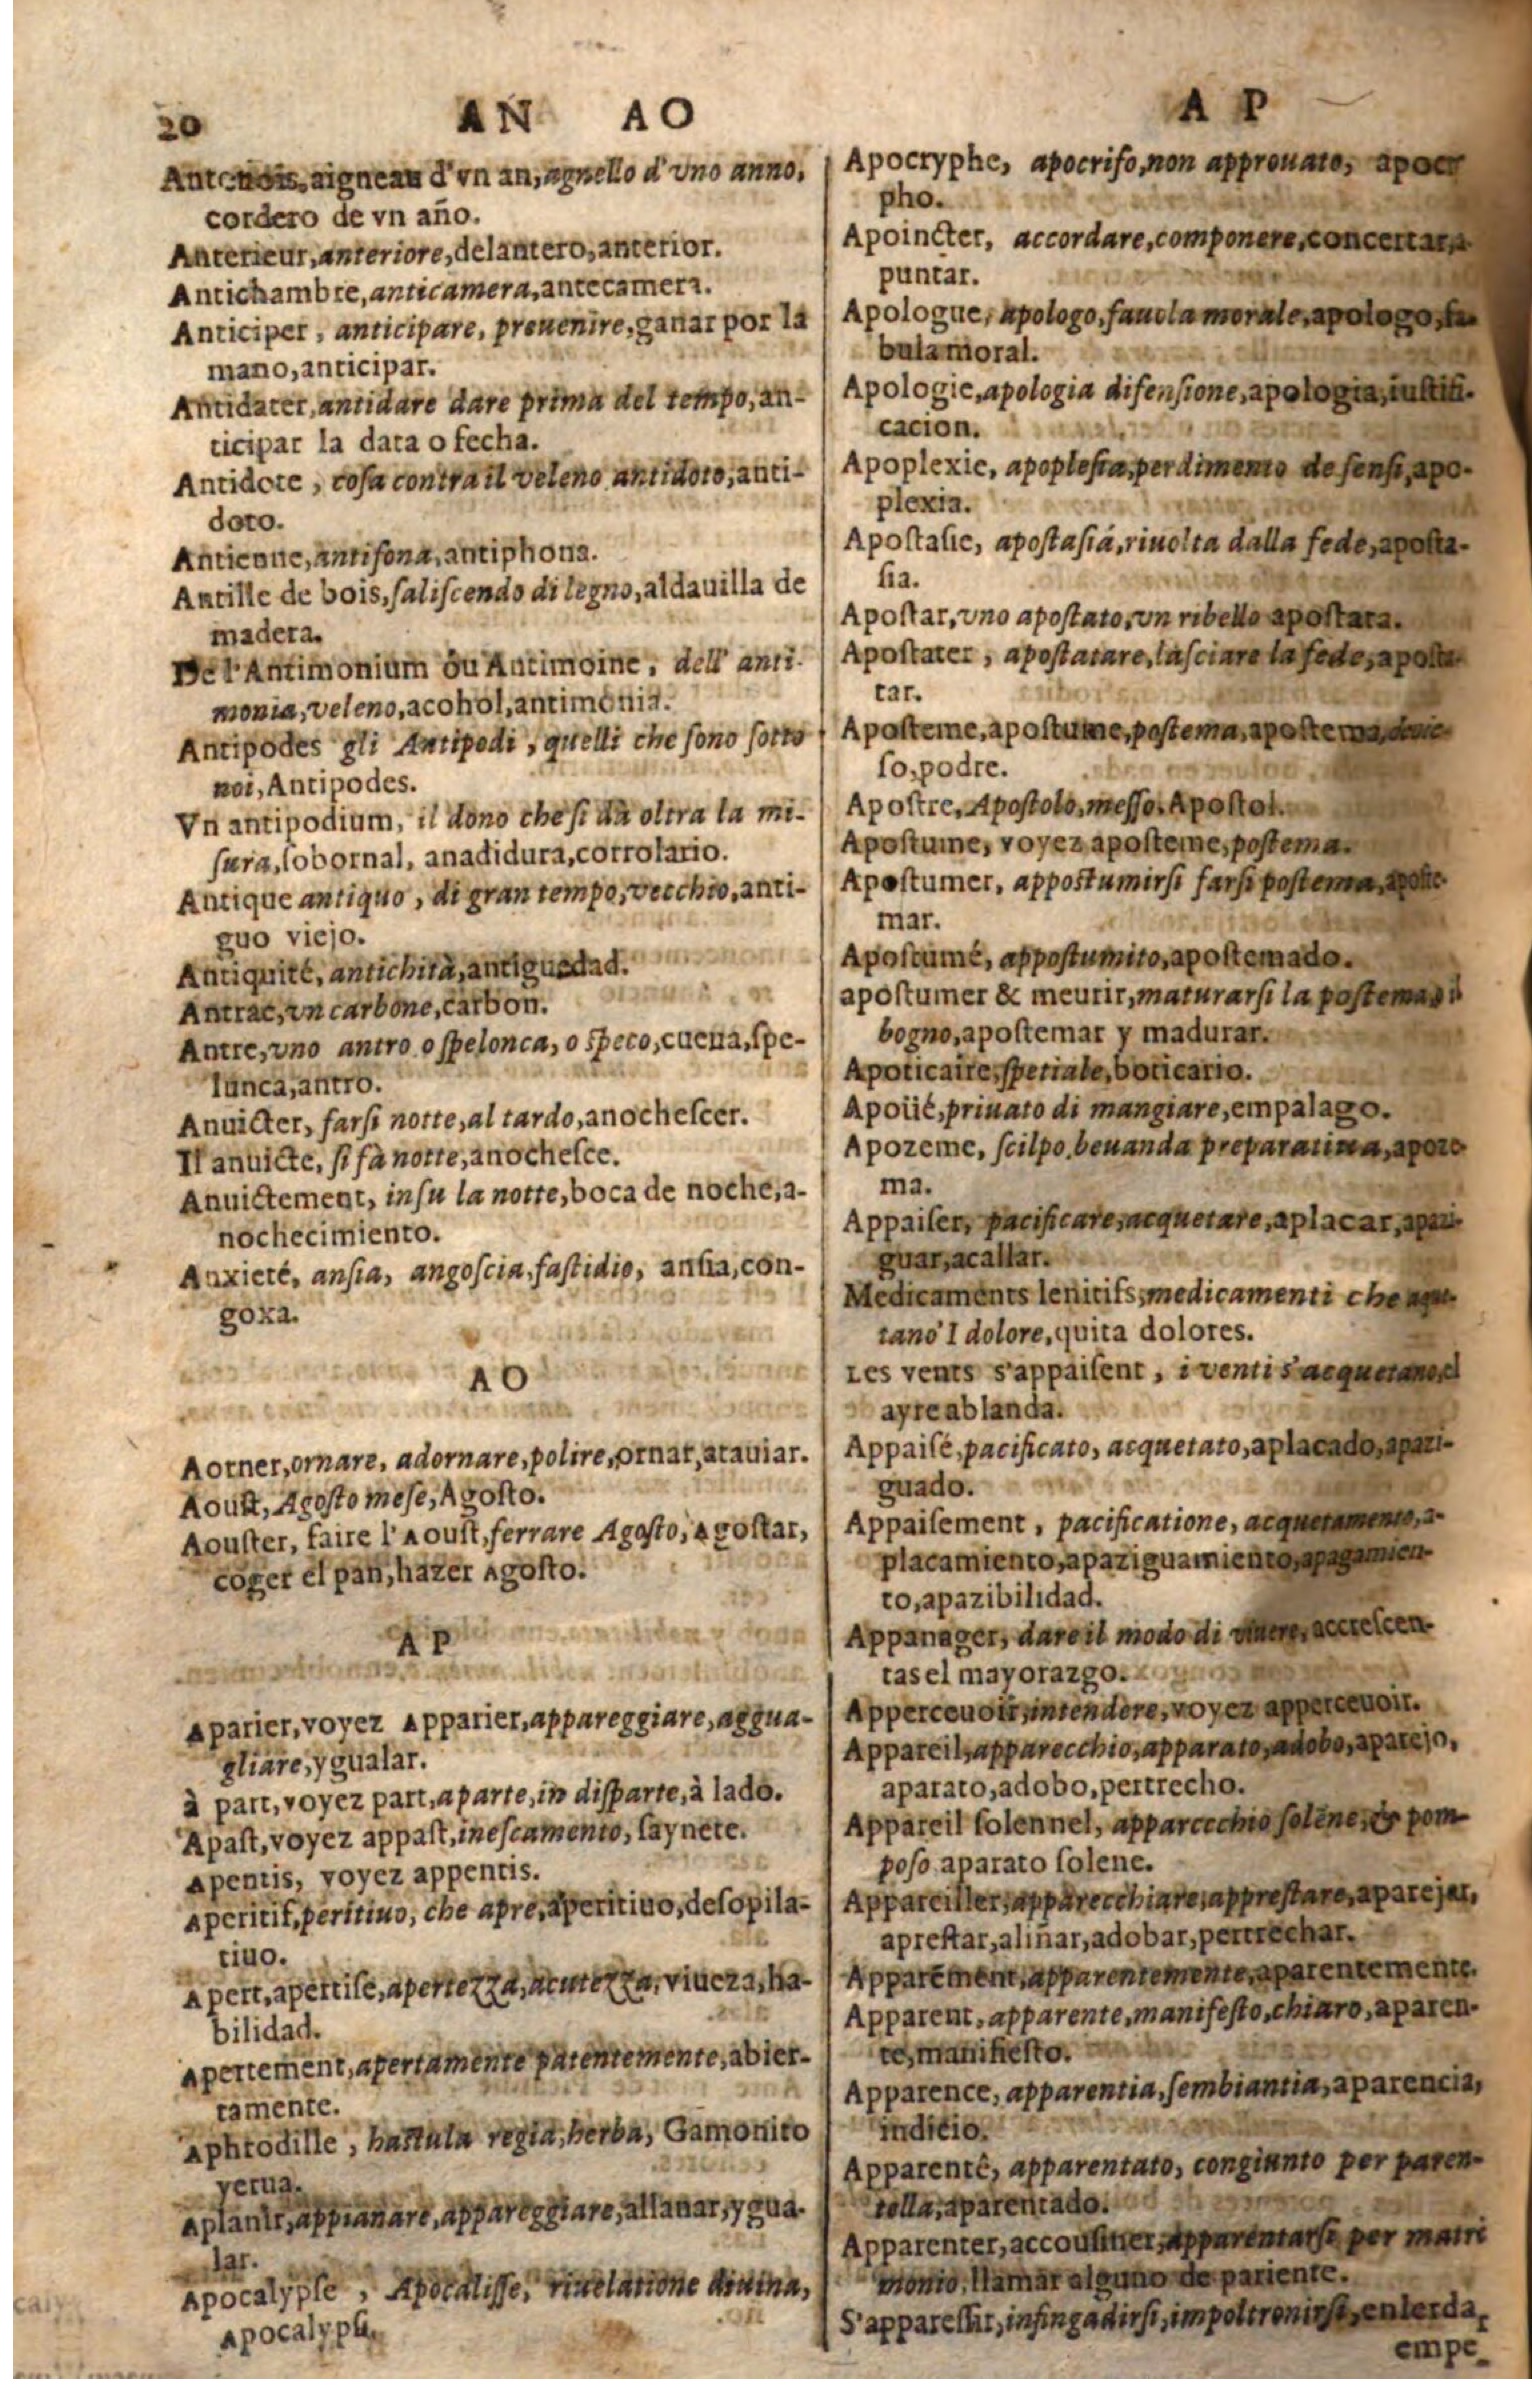 20
AN AO
Antenois, aigneau d'vn an, agnello d'vno anno,
cordero de vn año.
Anterieur, anteriore, delantero, anterior.
Antichambre, anticamera, antecamera.
Anticiper, anticipare, preuenire, ganar por la
mano, anticipar.
Antidater, antidare dare prima del tempo, an-
ticipar la data o fecha.
Antidote, cosa contra il veleno antidoto, anti-
doto.
Antienne, antifona, antiphona.
Antille de bois, saliscendo di legno, aldauilla de
madera.
De l'Antimonium ou Antimoine, dell' anti-
monia, veleno, acohol, antimonia.
Antipodes gli Antipodi, quelli che sono sotto
noi, Antipodes.
Vn antipodium, il dono che si dà oltra la mi-
sura, sobornal, anadidura, corrolario.
Antique antiquo, di gran tempo, vecchio, anti-
guo viejo.
Antiquité, antichità, antiguedad.
Antrac, vn carbone, carbon.
Antre, vno antro o spelonca, o speco, cueua, spe-
lunca, antro.
Anuicter, farsi notte, al tardo, anochescer.
Il anuicte, si fà notte, anochesce.
Anuictement, insu la notte, boca de noche, a-
nochecimiento.
Anxieté, ansia, angoscia, fastidio, ansia, con-
goxa.
AO
Aorner, ornare, adornare, polire, ornar, atauiar.
Aoust, Agosto mese, Agosto.
Aouster, faire l'Aoust, ferrare Agosto, Agostar,
coger el pan, hazer Agosto.
AP
Aparier, voyez Apparier, appareggiare, aggua-
gliare, ygualar.
à part, voyez part, a parte, in disparte, à lado.
Apast, voyez appast, inescamento, saynete.
Apentis, voyez appentis.
Aperitif, peritiuo, che apre, aperitiuo, desopila-
tiuo.
Apert, apertise, apertezza, acutezza, viueza, ha-
bilidad.
Apertement, apertamente patentemente, abier-
tamente.
Aphrodille, hastula regia, herba, Gamonito
yerua.
Aplanir, appianare, appareggiare, allanar, ygua-
lar.
Apocalypse, Apocalisse, riuelatione diuina,
Apocalypsi.
AP
Apocryphe, apocrifo, non approuato, apocr
pho.
Apoincter, accordare, componere, concertar, a-
puntar.
Apologue, apologo, fauola morale, apologo, fa-
bula moral.
Apologie, apologia difensione, apologia, iustifi-
cacion.
Apoplexie, apoplesia, perdimento de sensi, apo-
plexia.
Apostasie, apostasiá, riuolta dalla fede, aposta-
sia.
Apostat, vno apostato, vn ribello apostata.
Apostater, apostatare, lasciare la fede, aposta-
tar.
Aposteme, apostume, postema, apostema, deuie-
so, podre.
Apostre, Apostolo, messo, Apostol.
Apostume, voyez aposteme, postema.
Apostumer, appostumirsi farsi postema, aposte-
mar.
Apostumé, appostumito, apostemado.
apostumer & meurir, maturarsi la postema, il
bogno, apostemar y madurar.
Apoticaire, spetiale, boticario.
Apoüé, priuato di mangiare, empalago.
Apozeme, scilpo, beuanda preparatiua, apoze-
ma.
Appaiser, pacificare, acquetare, aplacar, apazi-
guar, acallar.
Medicaments lenitifs, medicamenti che aque-
tano'l dolore, quita dolores.
Les vents s'appaisent, i venti s'acquetano, el
ayre ablanda.
Appaisé, pacificato, acquetato, aplacado, apazi-
guado.
Appaisement, pacificatione, acquetamento, a-
placamiento, apaziguamiento, apagamien-
to, apazibilidad.
Appanager, dare il modo di viuere, accrescen-
tas el mayorazgo.
Apperceuoir, intendere, voyez apperceuoir.
Appareil, apparecchio, apparato, adobo, aparejo,
aparato, adobo, pertrecho.
Appareil solennel, apparecchio solēne, & pom-
poso aparato solene.
Appareiller, apparecchiare, apprestare, aparejar,
aprestar, aliñar, adobar, pertrechar.
Apparēment, apparentemente, aparentemente.
Apparent, apparente, manifesto, chiaro, aparen-
te, manifiesto.
Apparence, apparentia, sembiantia, aparencia,
indicio.
Apparenté, apparentato, congiunto per paren-
tella, aparentado.
Apparenter, accousiner, apparentarsi per matri
monio, llamar alguno de pariente.
S'apparessir, infingadirsi, impoltronirsi, enlerda,
empe-